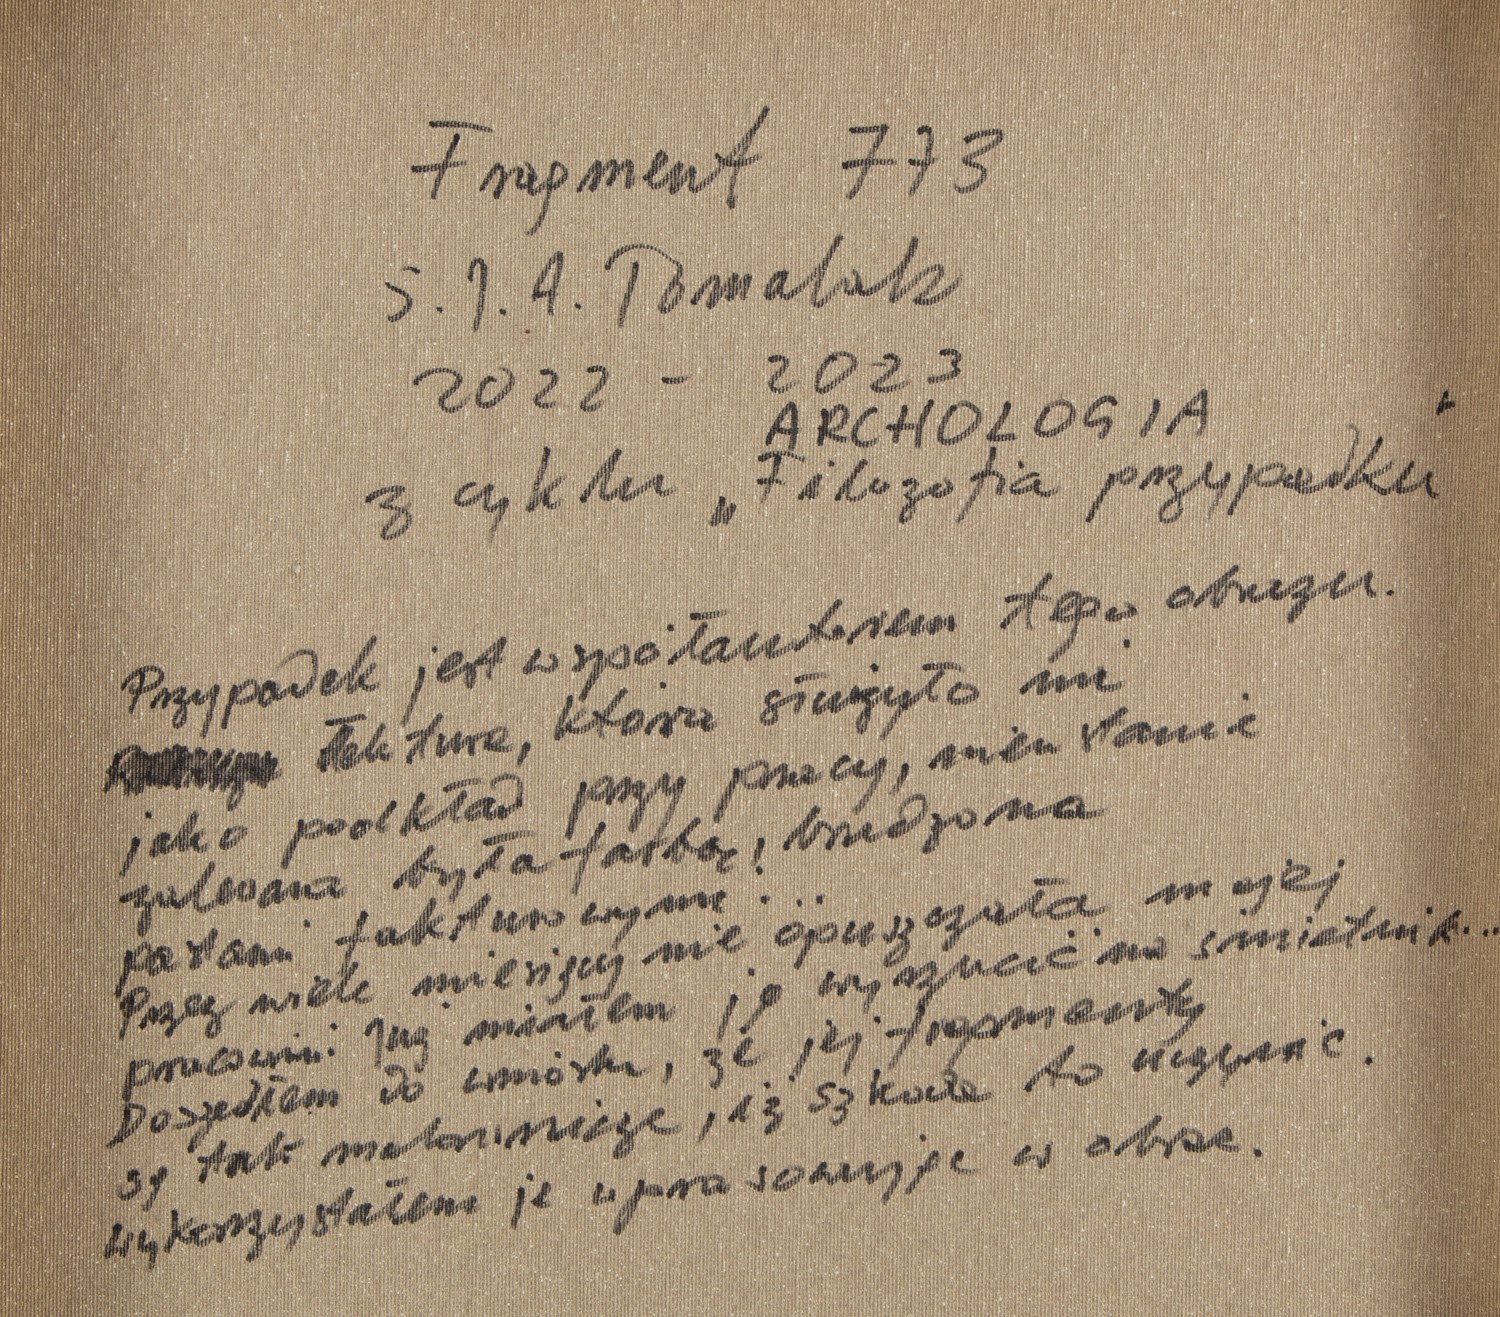 Fragment 773
S.J.A. Tomalak
2022 - 2023
ARCHOLOGIA
z cyklu „Filozofia przypadku"
Przypadek jest współautorem tego obrazu.
Tektura, która służyło mi
jako podkład przy pracy, nieustanie
zalewana była farbą, brudzona
pastami fakturowymi.
Przez wiele miesięcy nie opuszczała mojej
pracowni. Już miałem ją wyrzucić na śmietnik...
Doszedłem do wniosku, że jej fragmenty
są tak malownicze, iż szkoda to uczynić.
wykorzystałem je wprasowując w obraz.